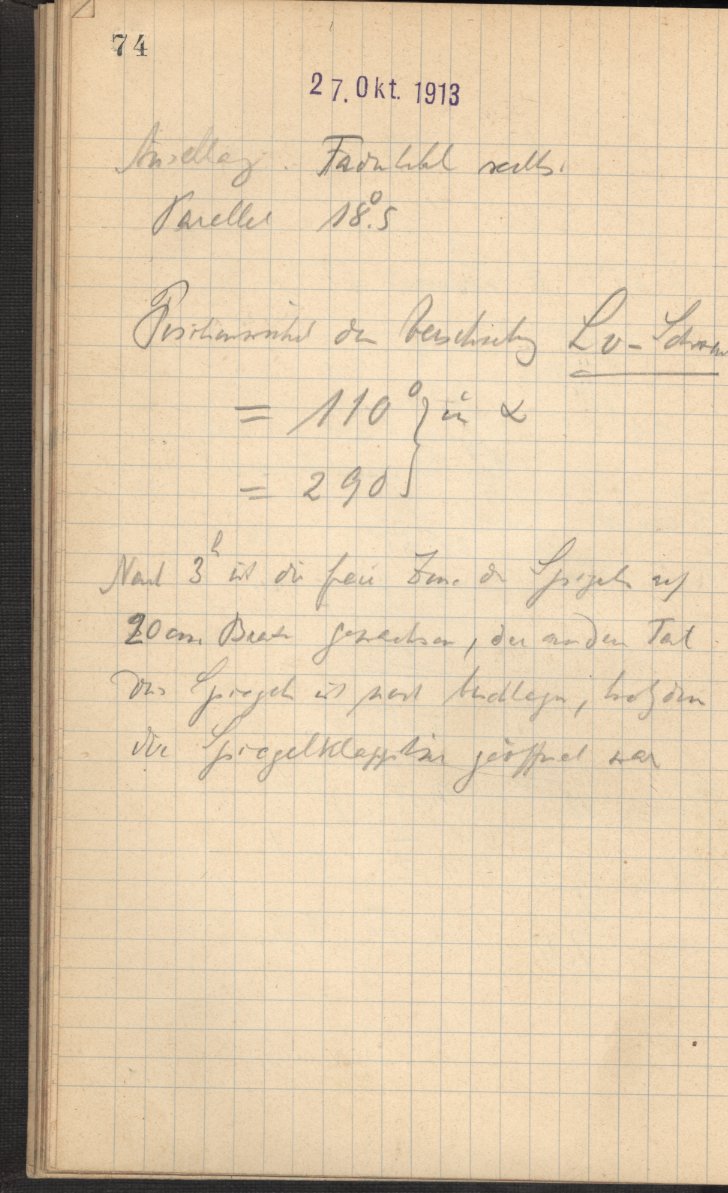 74
27. Okt. 1913
Anschlag. rechts.
Parallel 18°.5
Positionswinkel der Verschiebg Lv-Schraube
= 110° } in α
= 290
Nach 3h ist die freie Zone des Spiegels auf
20 cm Breite gewachsen, der andere Teil
des Spiegels ist noch beschlagen, trotzdem
die Spiegelklapptür geöffnet war